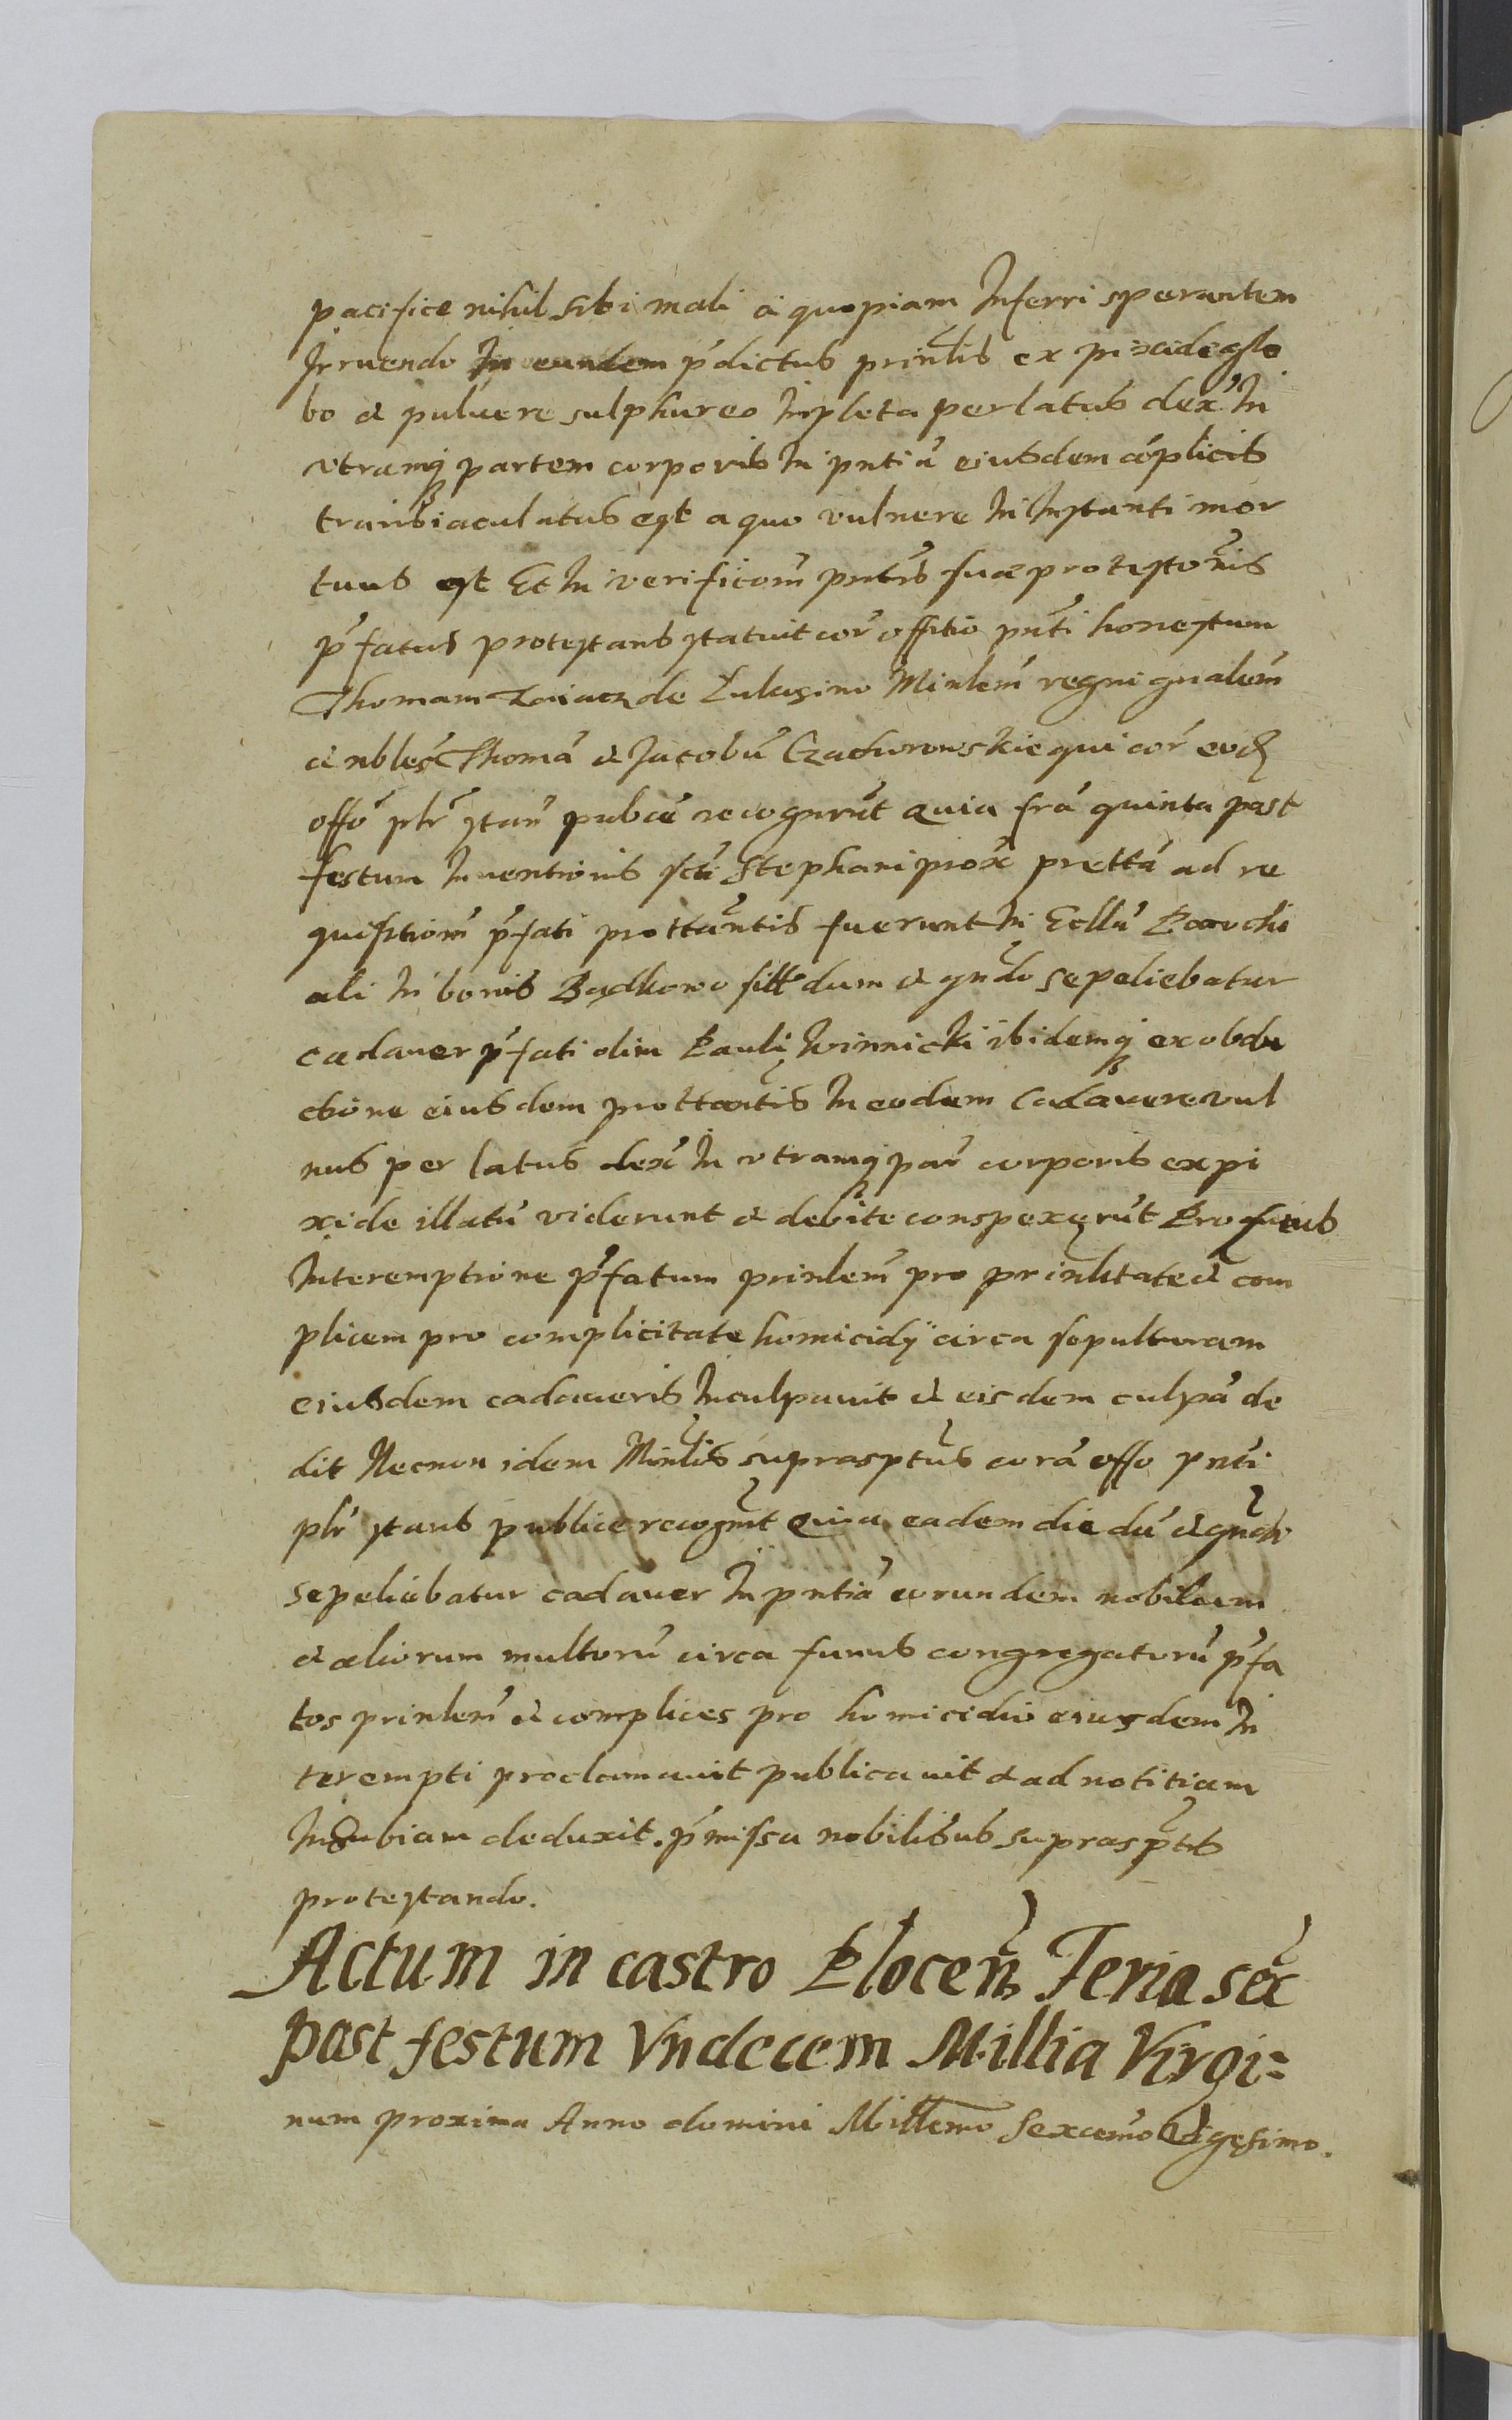 pacifice nihil sibi mali a quopiam Inferri sperantem
Irruendo In eundem p̃dictus prinl̃is ex pixide glo
bo et puluere sulphureo Inpleta per latus dex̃ In
vtramq̃ partem corporis In pn̄tiã eiusdem cõplicis
transiaculatus est a quo vulnere In Instanti mor
tuus est Et In verificom̃ pn̄tis suæ protestonĩs
p̃fatus protestans statuit cor̃ offitio pn̄ti honestum
Thomam Zaiacz de Zulasino Minlem̃ regni gn̄alem̃
et nbles̃ Thomã et Jacobũ Czachorowskie qui cor̃ eod
offõ pl̃r stan̄ pub̃ce recogñrũt Quia fr̃a quinta post
festum Inuentionis sc̃ti Stephani prox̃ prettã ad re
quisitiom̃ p̃fati prottañtis fuerunt In Ecllã Parochi
ali In bonis Bądkowo sitt̃ dum et qn̄do sepeliebatur
cadauer p̃fati olim Pauli Winnicki ibidemq̃ ex obdu
ctione eiusdem prottantis In eodem Cadauere vul
nus per latus dex̃ In vtramq̃ par̃ corporis ex pi
xide illatũ viderunt et debite conspexerũt Pro cuius
Interemptione p̃fatum prinlem̃ pro prinlitate et com
plicem pro complicitate homicidÿ circa sepulturam
eiusdem cadaueris Inculpauit et eisdem culpã de
dit Necnon idem Minl̃is suprasptũs corã offo pn̄ti
pl̃r stans publice recogñit Quia eadem die dũ et qn̄do
sepeliebatur cadauer In pn̄tiã eorundem nobilium
et aliorum multorũ circa funus congregatorũ p̃fa
tos prinlem̃ et complices pro homicidio eiusdem In
terempti proclamauit publicauit et ad notitiam
Indubiam deduxit. p̃missa nobilibus supraspt̃is
protestando.
Actum in castro Plocen̄ Feria sex̃
post festum Vndecem Millia Virgi=
num proxima Anno domini Millemõ Sexcem̃o Vigesimo.